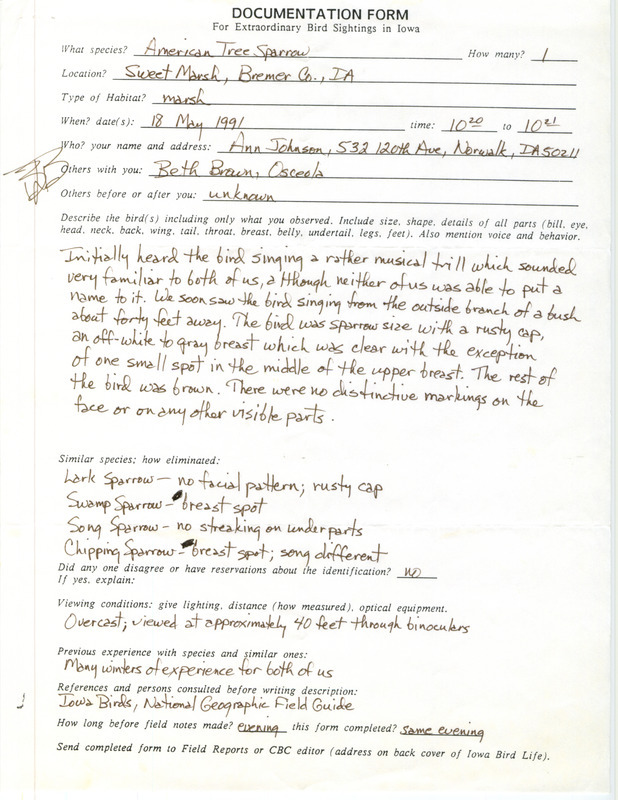 DOCUMENTATION FORM
For Extraordinary Bird Sightings in Iowa
What species? American Tree Sparrow How many? 1
Location? Sweet Marsh, Bremer Co., IA
Type of Habitat? marsh
When? date(s): 18 May 1991 time: 10 20 to 10 21
Who? your name and address: Ann Johnson, 532 120th Ave, Norwalk, IA 50211
Others with you: Beth Brown, Osceola
Others before or after you: unknown
Describe the bird(s) including only what you observed. Include size, shape, details of all parts (bill, eye,
head, neck, back, wing, tail, throat, breast, belly, undertail, legs, feet). Also mention voice and behavior.
Initially heard the bird singing a rather musical trill which sounded
very familiar to both of us, although neither of us was able to put a
name to it. We soon saw the bird singing from the outside branch of a bush
about forty feet away. The bird was sparrow size with a rusty cap,
an off-white to gray breast which was clear with the exception
of one small spot in the middle of the upper breast. The rest of
the bird was brown. There were no distinctive markings on the
face or on any other visible parts.
Similar species; how eliminated:
Lark Sparrow - no facial pattern; rusty cap
Swamp Sparrow - breast spot
Song Sparrow - no streaking on underparts
Chipping Sparrow - breast spot; song different
Did any one disagree or have reservations about the identification? no
If yes, explain:
Viewing conditions: give lighting, distance (how measured), optical equipment.
Overcast; viewed at approximately 40 feet through binoculars
Previous experience with species and similar ones:
Many winters of experience for both of us
References and persons consulted before writing description:
Iowa Birds, National Geographic Field Guide
How long before field notes made? evening this form completed? same evening
Send completed form to Field Reports or CBC editor (address on back cover of Iowa Bird Life).